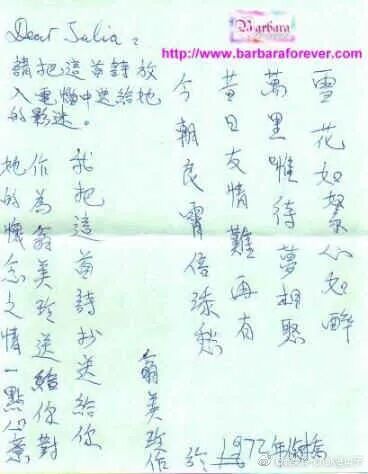 Barbara
http://www.barbaraforever.com
Dear Julia,
請把這首詩放
入電腦中送給她
的影迷。
雪花如絮心如醉
萬里唯待夢相聚
昔日友情難再有
今朝良霄倍添愁
翁美玲作
於 1972年
我把這首詩抄送給你
作為翁美玲送給你對
她的懷念之情一點心意